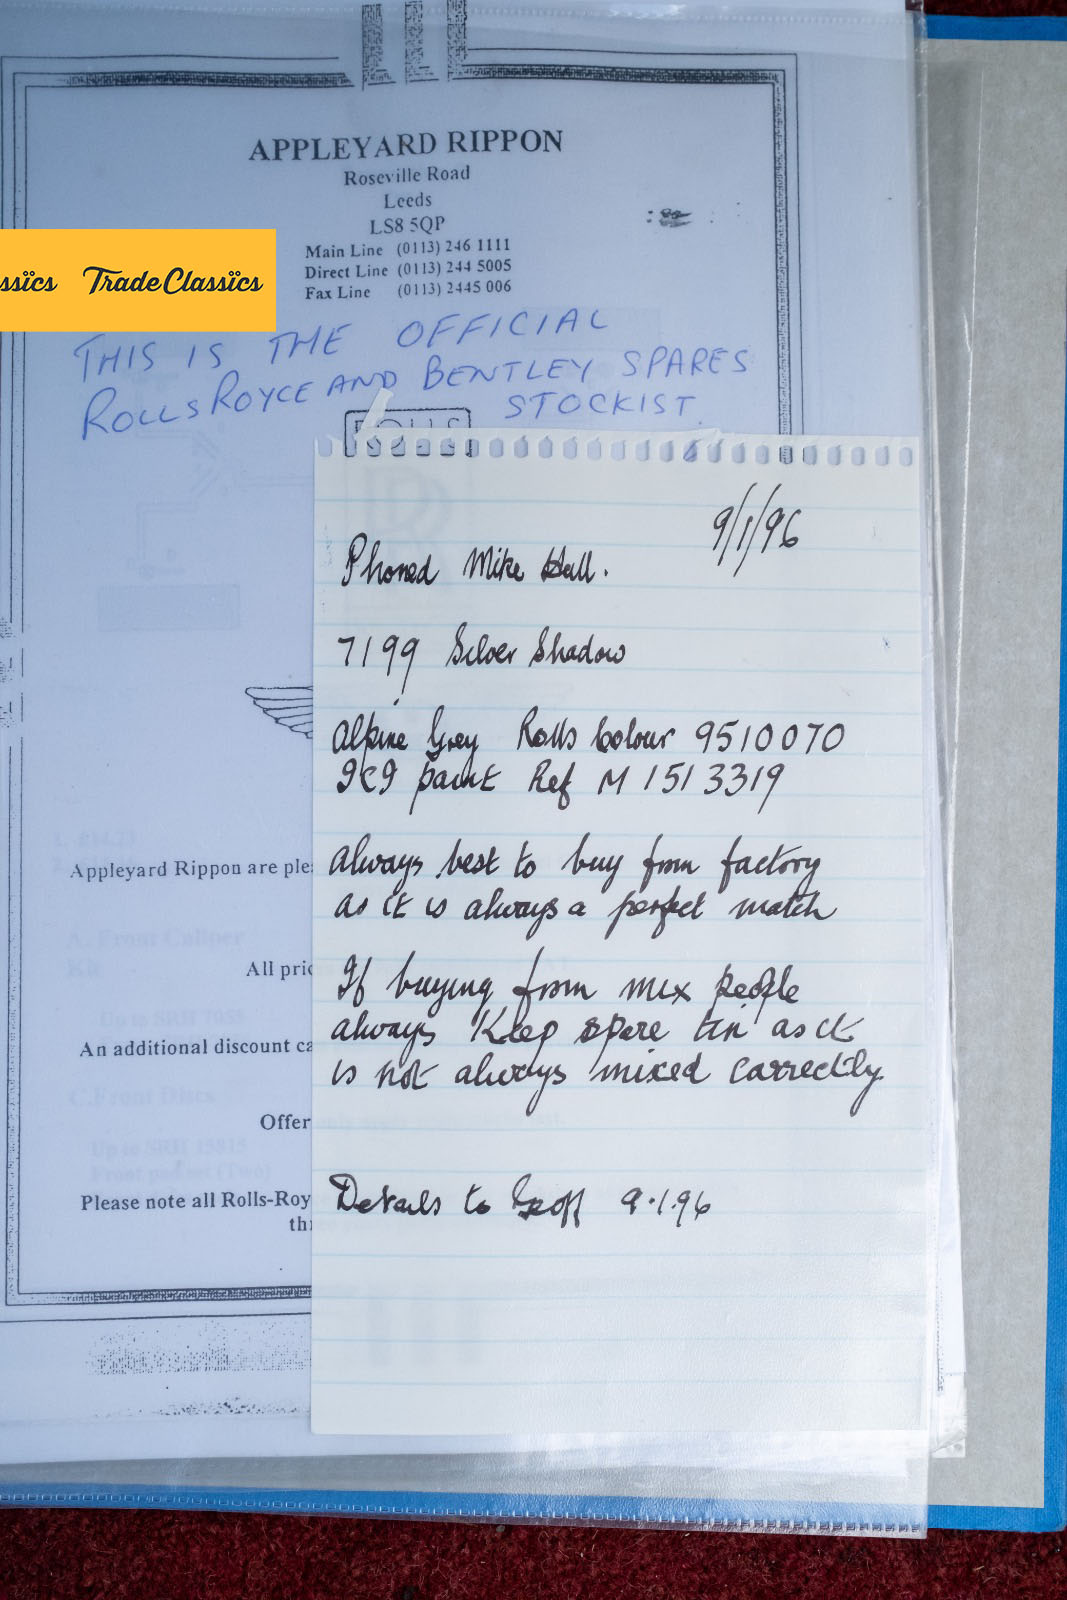 APPLEYARD RIPPON
Roseville Road
Leeds
LS8 5QP
Main Line (0113) 246 1111
Direct Line (0113) 244 5005
Fax Line (0113) 2445 006
ssics TradeClassics
THIS IS THE OFFICIAL
ROLLS ROYCE AND BENTLEY SPARES
STOCKIST
ROLLS
9/1/96
Phoned Mike Hall.
7199 Silver Shadow
Alpine Grey Rolls Colour 9510070
ICI paint Ref M 1513319
always best to buy from factory
as it is always a perfect match
If buying from mix people
always Keep spare tin as it
is not always mixed correctly
Details to Geoff 9.1.96
Appleyard Rippon are ple
All pric
A. Front Caliper
Kit
Up to SRH 7055
An additional discount ca
C.Front Discs
Offer
Up to SRH 15815
Front pad set (Two)
Please note all Rolls-Roy
thr